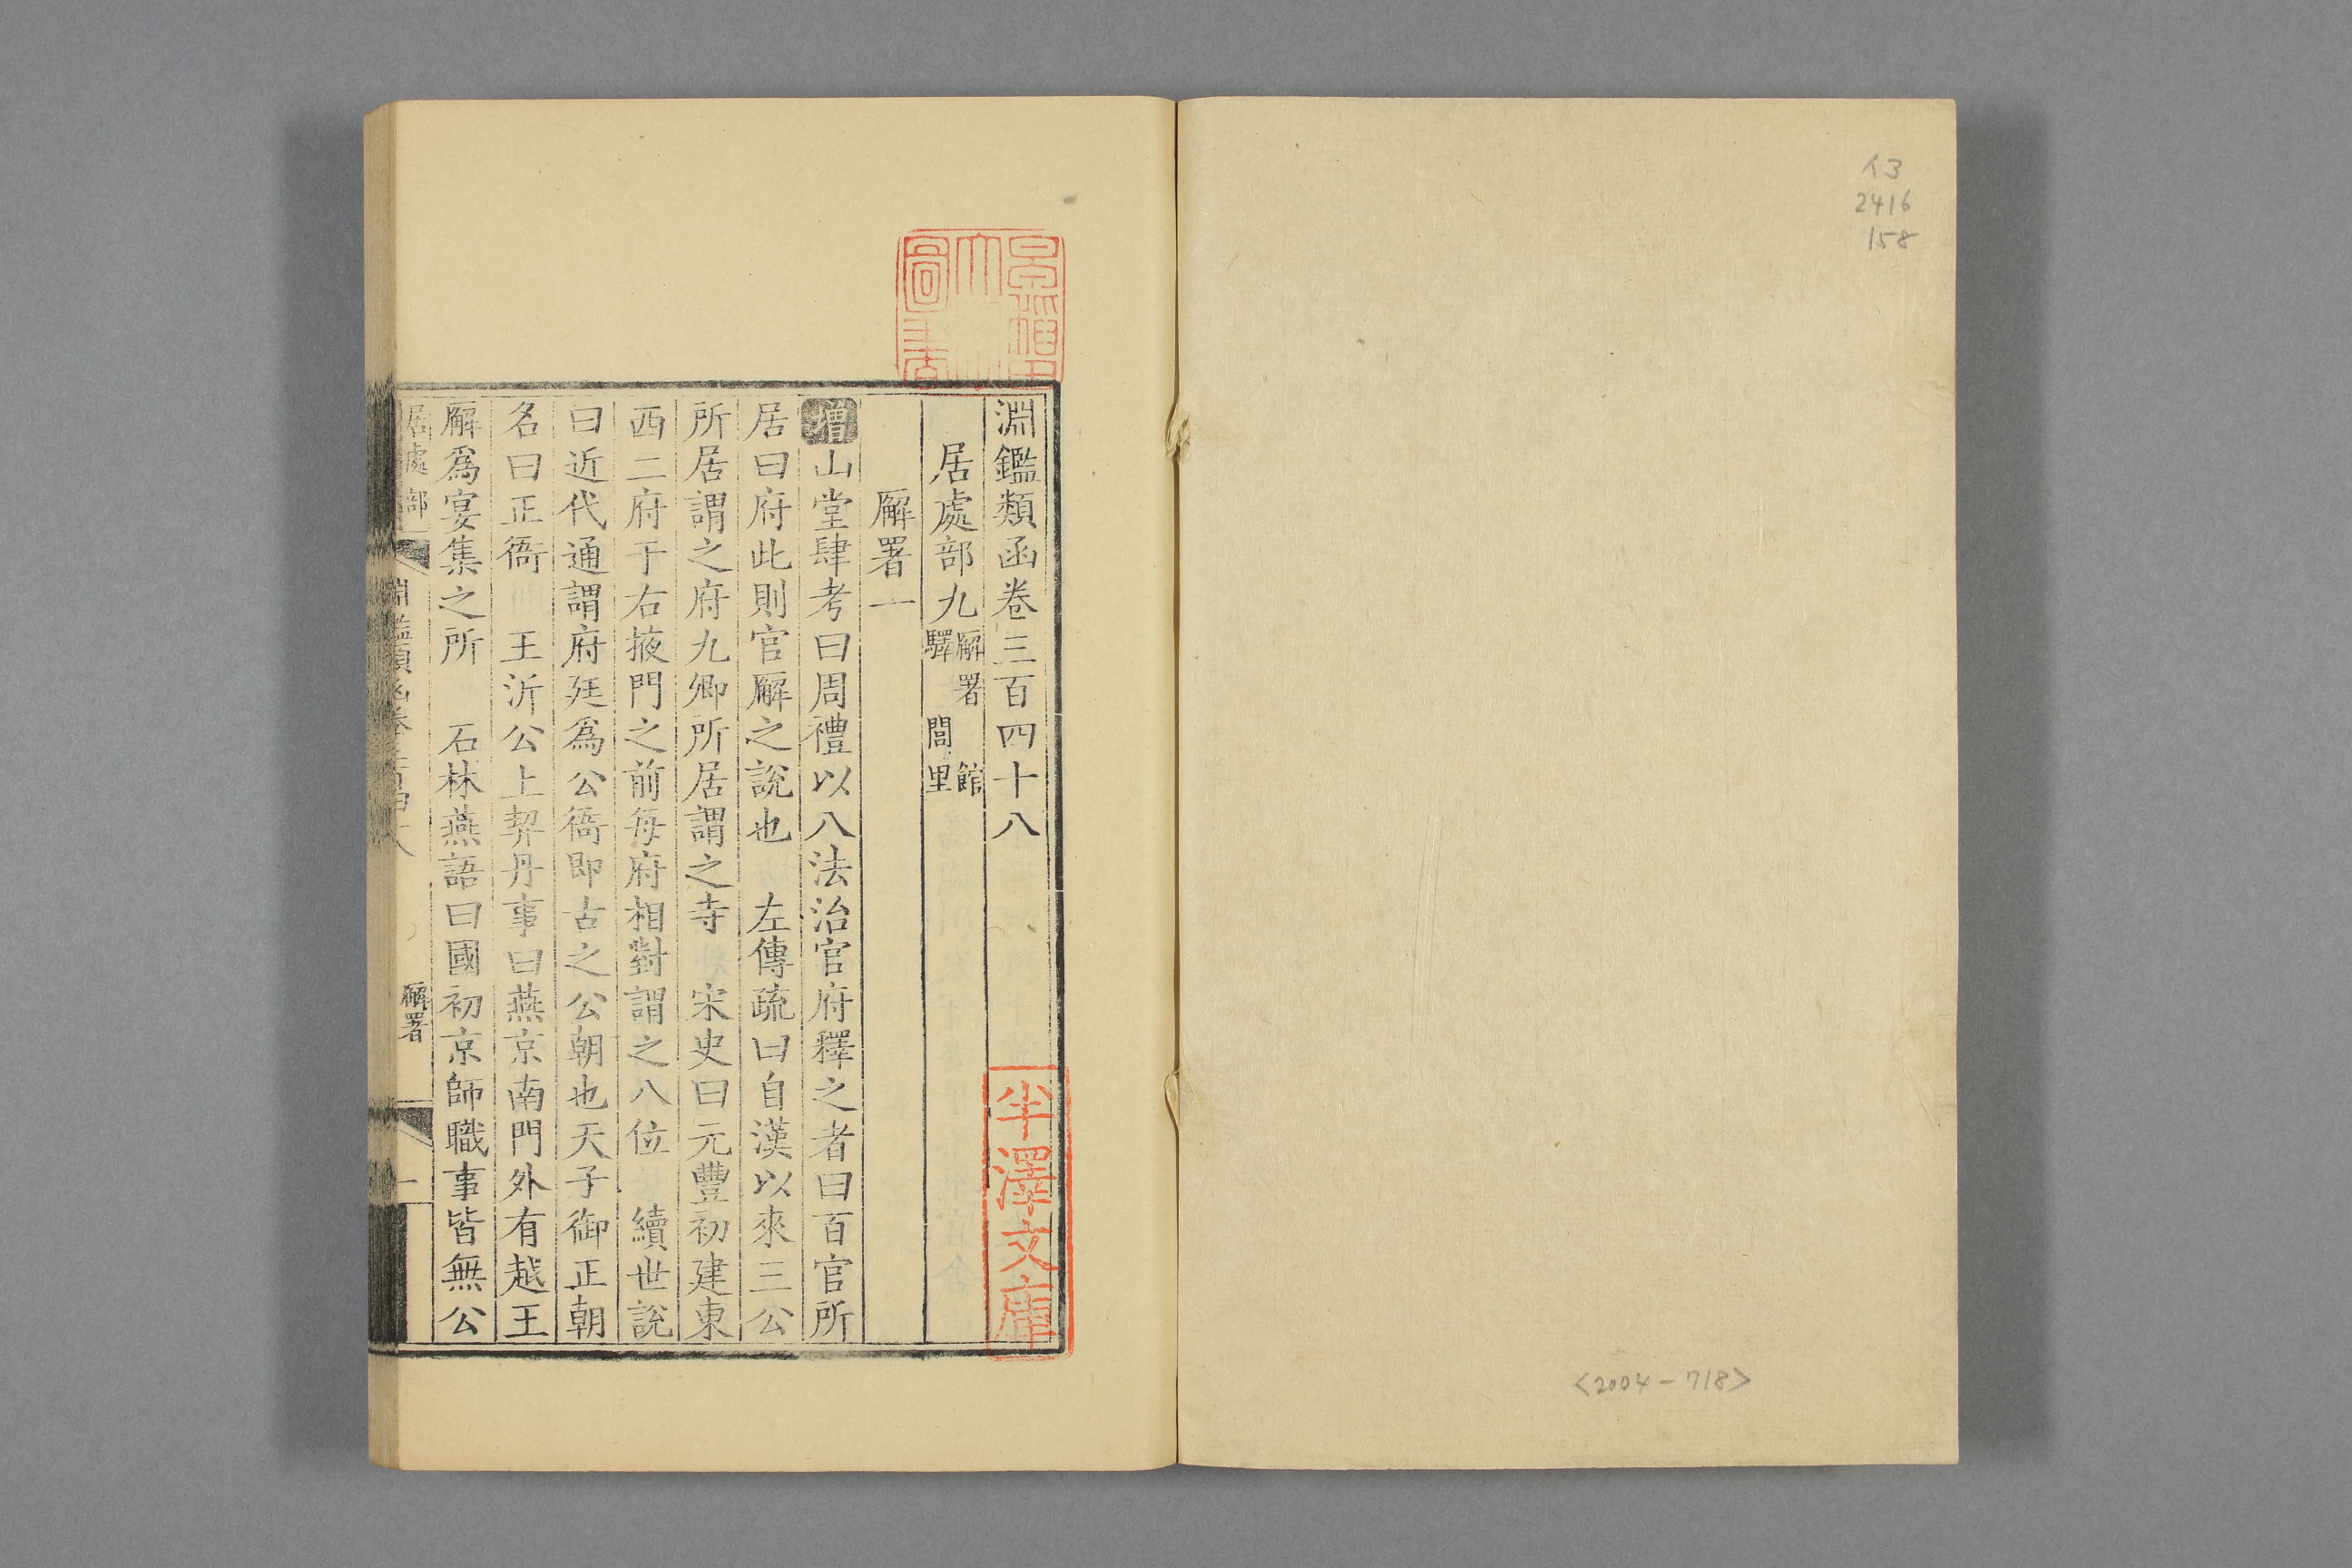 イ3
2416
158
<2004-718>
早稲田大學圖書
半澤文庫
淵鑑類函卷三百四十八
居處部九 廨署 館
驛 閭里
廨署一
增山堂肆考曰周禮以八法治官府釋之者曰百官所
居曰府此則官廨之說也 左傳疏曰自漢以來三公
所居謂之府九卿所居謂之寺 宋史曰元豐初建東
西二府于右掖門之前每府相對謂之八位 續世說
曰近代通謂府廷爲公衙即古之公朝也天子御正朝
名曰正衙 王沂公上契丹事曰燕京南門外有越王
廨爲宴集之所 石林燕語曰國初京師職事皆無公
居處部 淵鑑類函卷三百四十八 廨署 一